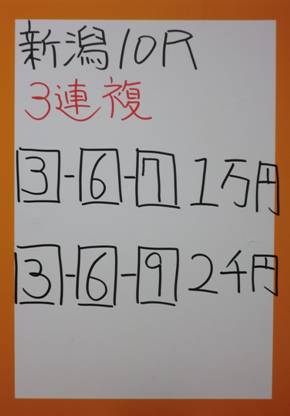 新潟10R
3連複
3-6-7 1万円
3-6-9 2千円